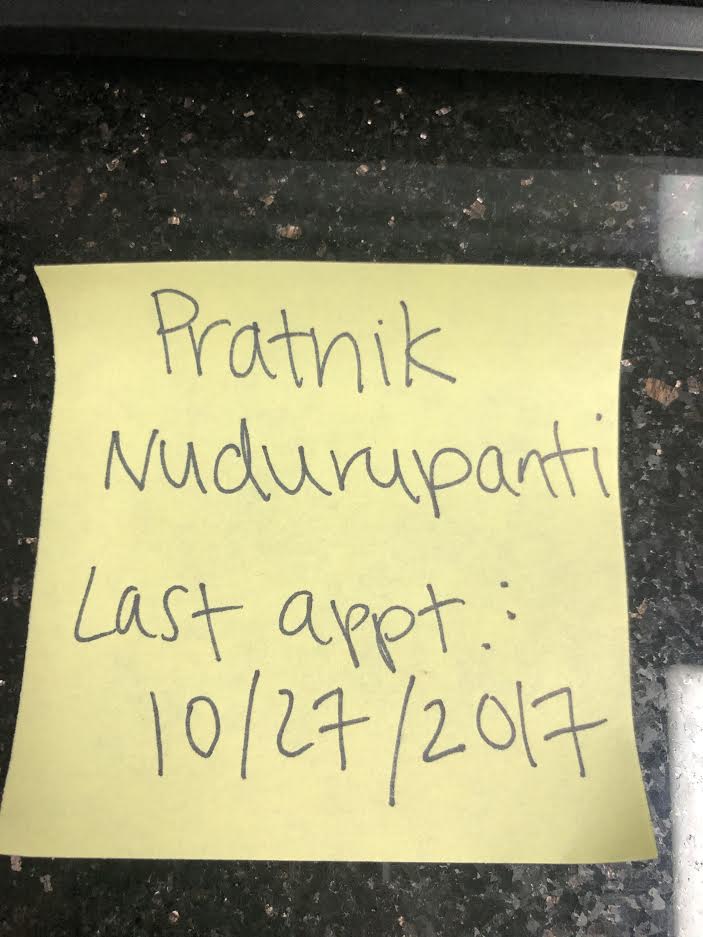 Pratnik
Nudurupanti
Last appt.:
10/27/2017